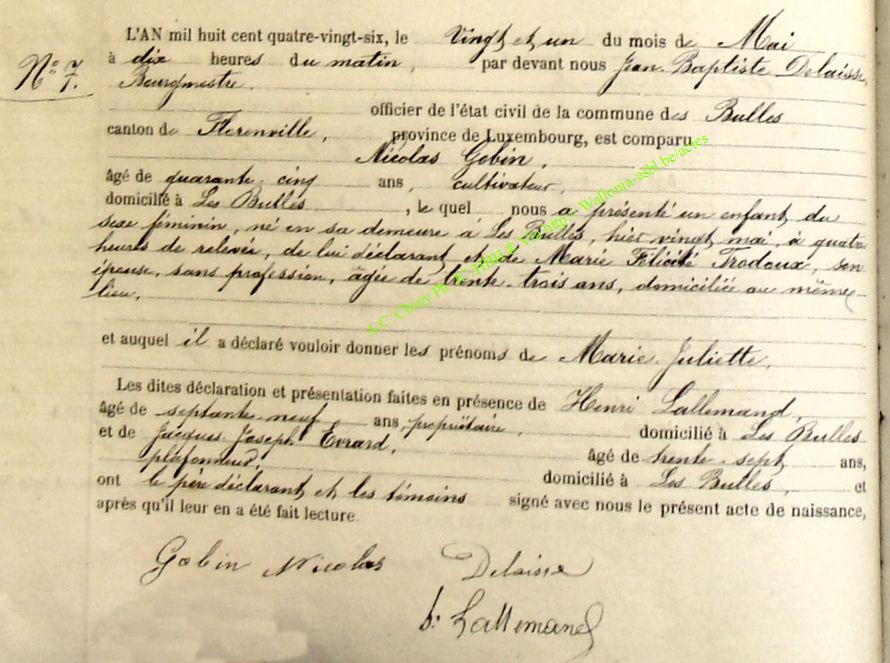 L'AN mil huit cent quatre-vingt-six, le Vingt et un du mois de Mai
N° 7.
à dix heures du matin, par devant nous Jean Baptiste Delaisse,
Bourgmestre,
officier de l'état civil de la commune des Bulles
canton de Florenville, province de Luxembourg, est comparu
Nicolas Gobin,
âgé de quarante cinq ans, cultivateur,
domicilié à Les Bulles, le quel nous a présenté un enfant du
sexe féminin, né en sa demeure à Les Bulles, hier vingt mai, à quatre
heures de relevée, de lui déclarant et de Marie Félicité Trodoux, son
épouse, sans profession, âgée de trente-trois ans, domiciliée au même
lieu,
et auquel il a déclaré vouloir donner les prénoms de Marie Juliette,
Les dites déclaration et présentation faites en présence de Henri Lallemand,
âgé de septante neuf ans, propriétaire, domicilié à Les Bulles
et de Jacques Joseph Evrard, âgé de trente-sept ans,
plafonneur, domicilié à Les Bulles, et
ont le père déclarant et les témoins signé avec nous le présent acte de naissance,
après qu'il leur en a été fait lecture.
Gobin Nicolas Delaisse
Lallemand